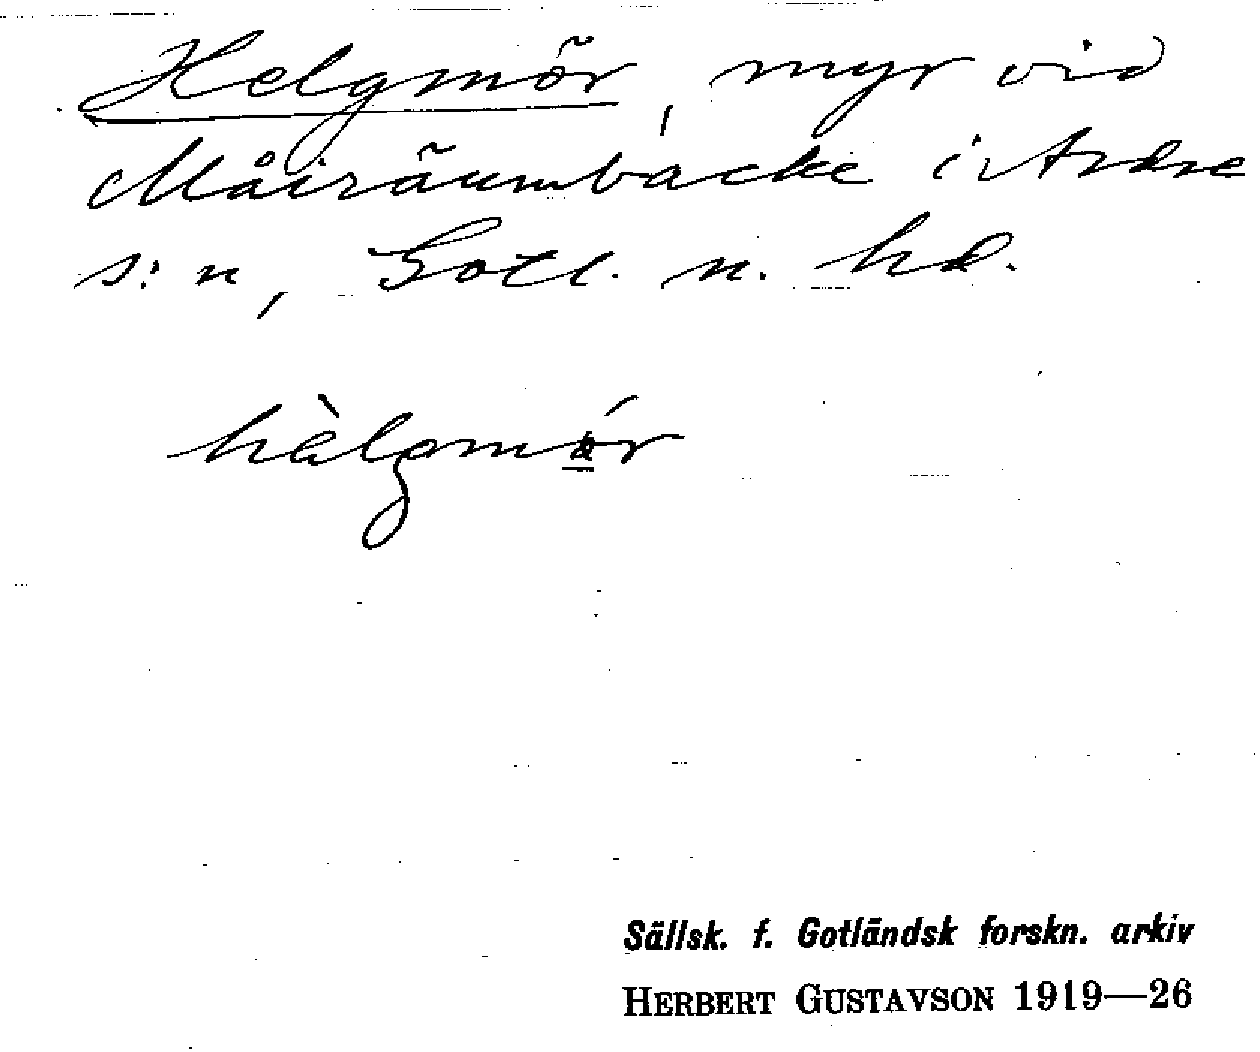 Helgmör, myr vid
Måiräumbacke i Ardre
s:n, Gotl. n. hd.
hàlgmór
Sällsk. f. Gotländsk forskn. arkiv
HERBERT GUSTAVSON 1919—26